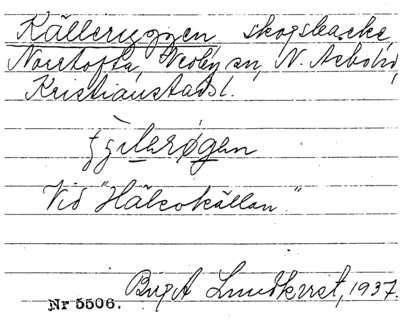 Källeryggen, skogsbacke,
Norrtofta, Vedby sn, N. Åsbo hd,
Kristianstads l.
Vid "Hälsokällan."
Birgit Lundkvist, 1937.
Nr 5506.